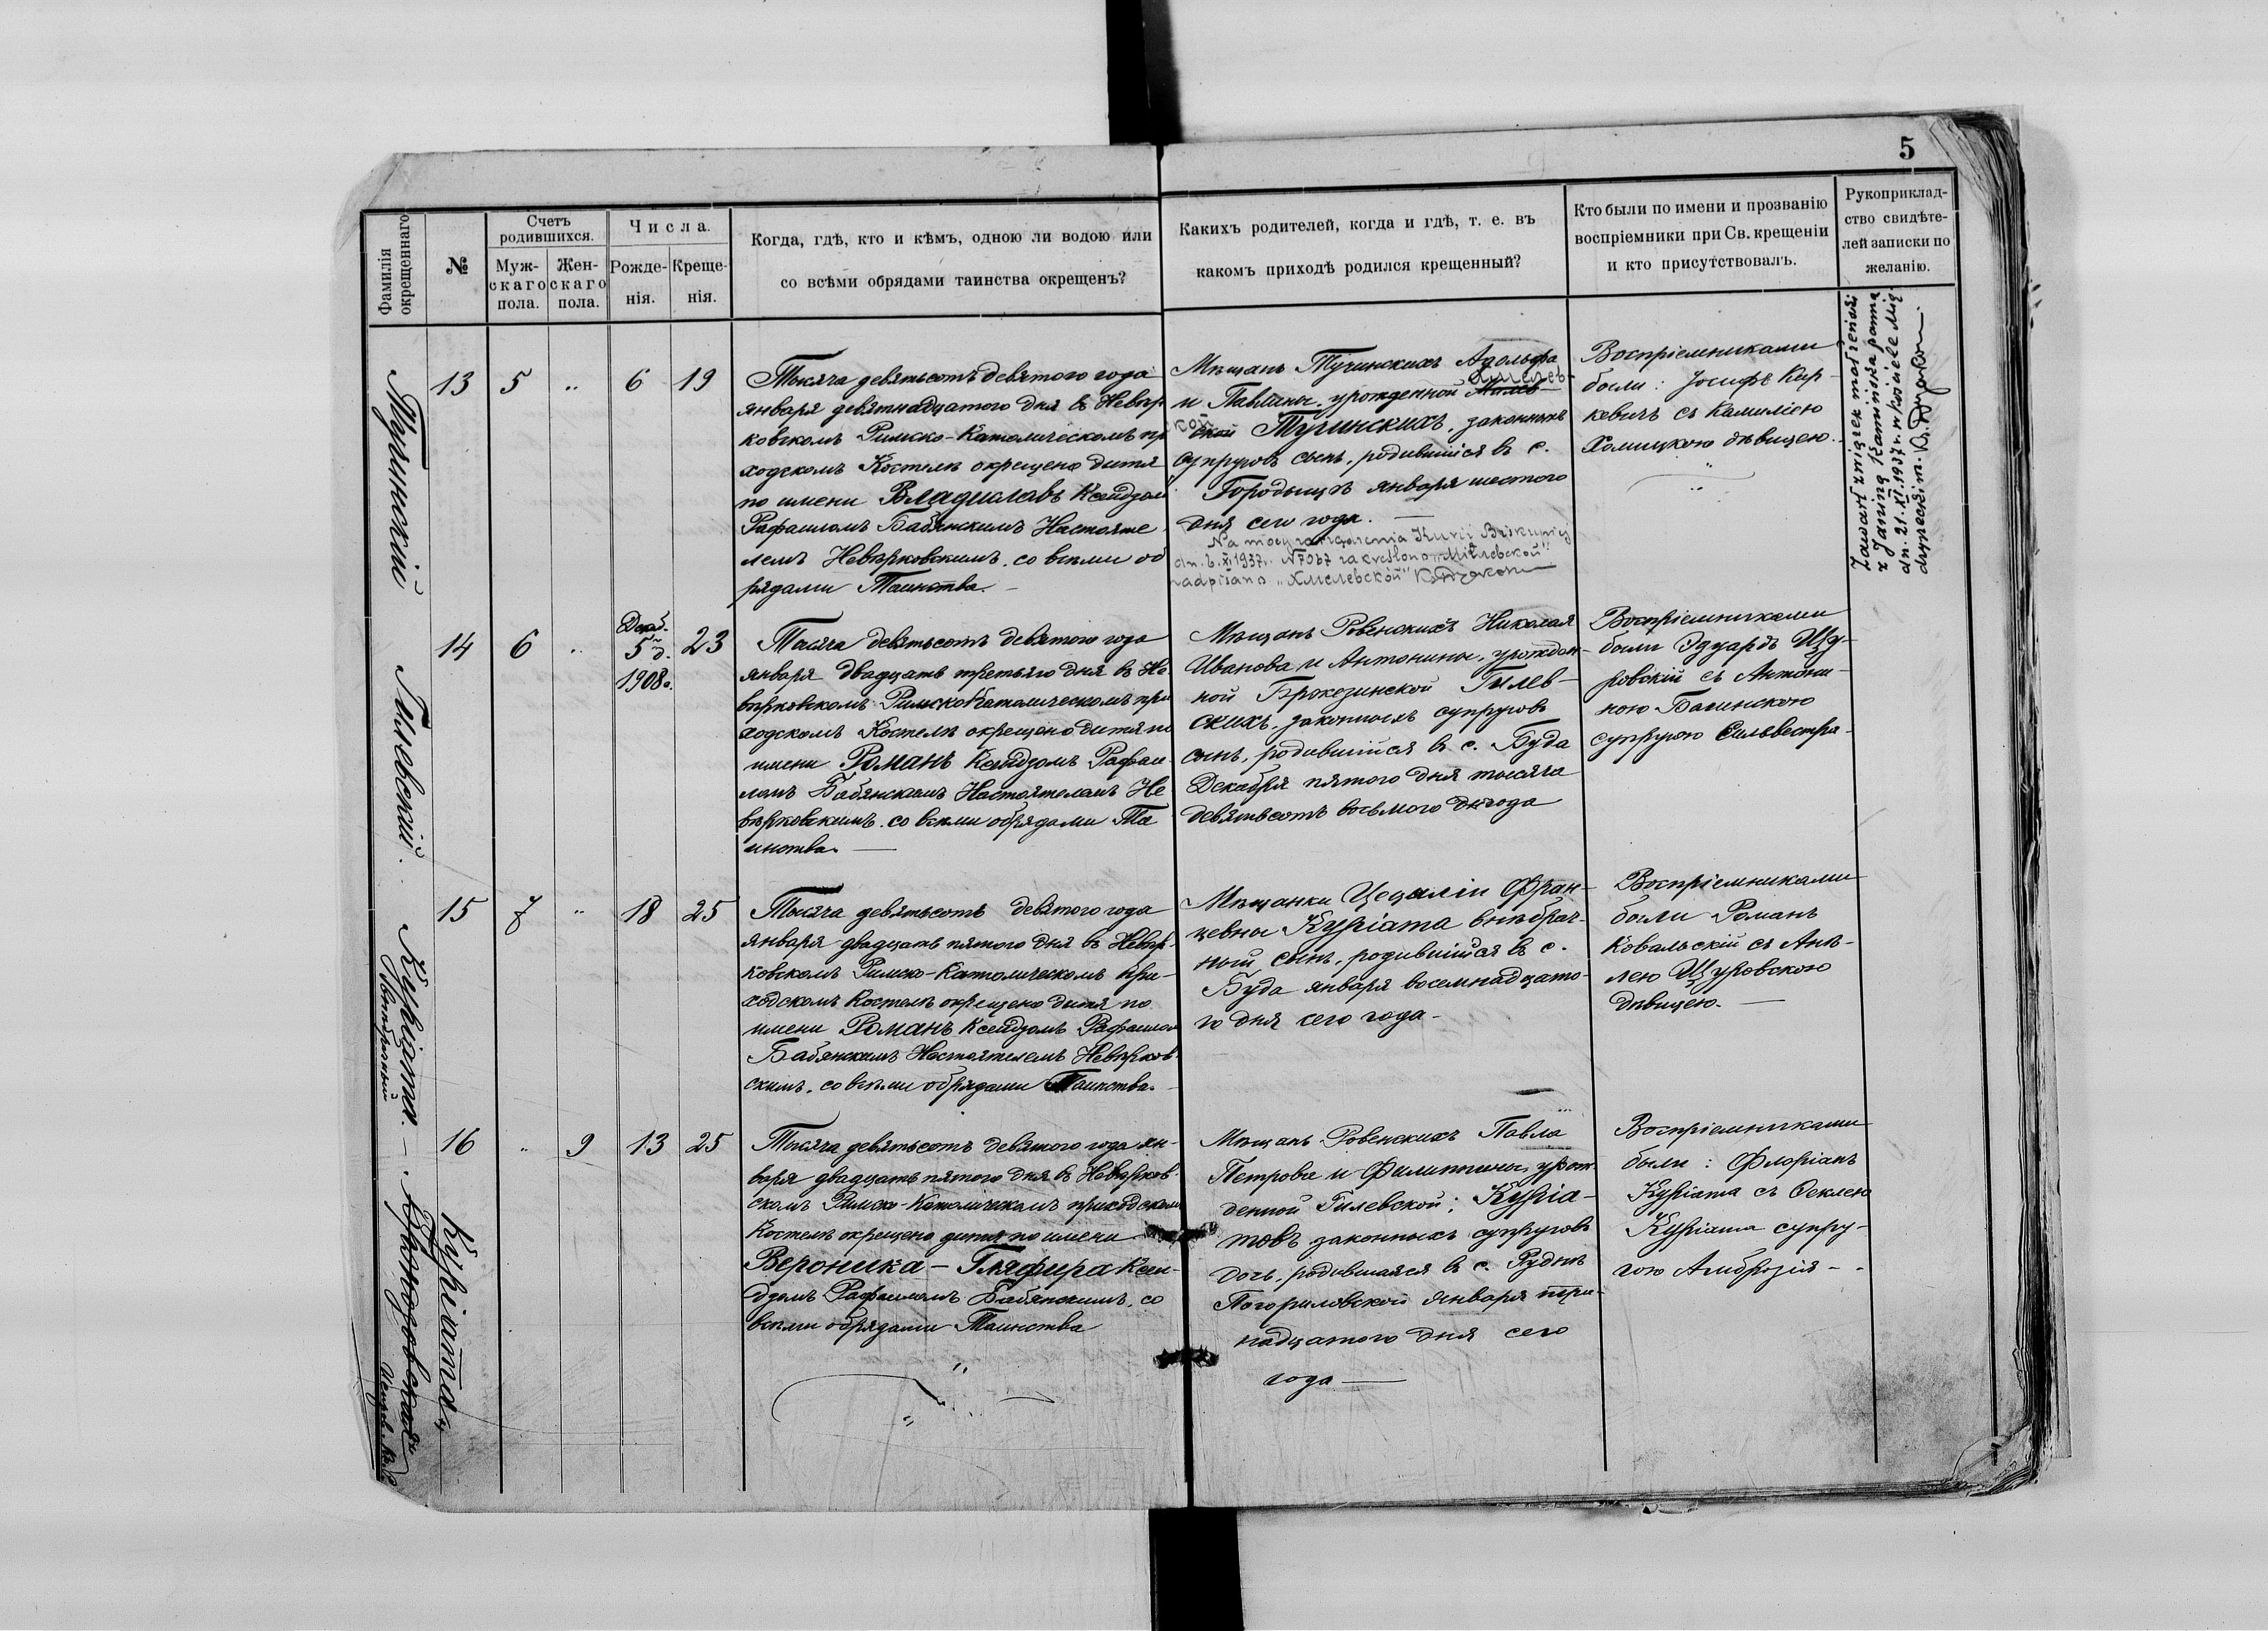 5
Фамилія окрещеннаго
№
Счетъ родившихся.
Муж-
скаго
пола.
Жен-
скаго
пола.
Числа.
Рожде-
нія.
Креще-
нія.
Когда, гдѣ, кто и кѣмъ, одною ли водою или
со всѣми обрядами таинства окрещенъ?
Какихъ родителей, когда и гдѣ, т. е. въ
какомъ приходѣ родился крещенный?
Кто были по имени и прозванію
воспріемники при Св. крещеніи
и кто присутствовалъ.
Рукоприклад-
ство свидѣте-
лей записки по
желанію.
Тучинскій
13
5
"
6
19
Тысяча девятьсотъ девятого года
января девятнадцатого дня въ Невѣр
ковскомъ Римско-Католическомъ пр
ходскомъ Костелѣ окрещено дитя
по имени Владиславъ Ксендзом
Рафаиломъ Бабянскимъ Настояте
лемъ Невѣрковскимъ, со всѣми об
рядами Таинства. —
Мѣщанъ Тучинскихъ Адольфа
Хмелев-
и Павлины, урожденной
кой
ской Тучинскихъ, законныхъ
супруговъ сынъ, родившійся въ с.
Городыщѣ января шестого
дня сего года. —
Na mocy zarządzenia Kurii Biskupiej
dn. 6.XI.1937r. N 7067 zakreślono
nadpisano „Хмелевской"
Воспріемниками
были: Іосифъ Кир-
кевичъ съ Камиліею
Холицкою дѣвицею.
Zawarł związek małżeński
z Janiną Kamińską panną
dn. 21.XI.1937 r. w kościele
Гилевскій.
14
6
"
Декаб.
5 д.
1908 г.
23
Тысяча девятьсотъ девятого года
января двадцать третьяго дня въ Не
вѣрковскомъ Римско-Католическомъ при
ходскомъ Костелѣ окрещено дитя по
имени Романъ Ксендзомъ Рафаи
ломъ Бабянскимъ Настоятелемъ Не
вѣрковскимъ, со всѣми обрядами Та
инства. —
Мѣщанъ Ровенскихъ Николая
Иванова и Антонины, урожден-
ной Бржезинской Гилев-
скихъ, законныхъ супруговъ
сынъ, родившійся въ с. Буда
Декабря пятого дня тысяча
девятьсотъ восьмого года
Воспріемниками
были Эдуардъ Щу-
ровскій съ Антони-
ною Багинскою
супругою Сильвестра.
Курьята. —
Внѣбрачный
15
7
"
18
25
Тысяча девятьсотъ девятого года
января двадцать пятого дня въ Невѣр-
ковскомъ Римско-Католическомъ при-
ходскомъ Костелѣ окрещено дитя по
имени Романъ Ксендзомъ Рафаилом
Бабянскимъ Настоятелемъ Невѣрков-
скимъ, со всѣми обрядами Таинства. —
Мѣщанки Цециліи Фран-
цевны Курiата внѣбрач-
ный сынъ, родившійся въ с.
Буда января восемнадцато-
го дня сего года —
Воспріемниками
были Романъ
Ковальскій съ Анѣ-
лею Щуровскою
дѣвицею. —
Kurjiata
16
"
9
13
25
Тысяча девятьсотъ девятого года ян-
варя двадцать пятого дня въ Невѣрков-
скомъ Римско-Католическомъ приходскомъ
Костелѣ окрещено дитя по имени
Вероника — Гляфира Ксен-
дзомъ Рафаиломъ Бабянскимъ, со
всѣми обрядами Таинства
Мѣщанъ Ровенскихъ Павла
Петрова и Филипины, урож
денной Гилевской, Курiа-
товъ законныхъ супруговъ
дочь, родившаяся въ с. Рудня
Погориловской января три-
надцатого дня сего
года —
Воспріемниками
были: Флоріанъ
Курiата съ Феклею
Курiата супру-
гою Амброзія —